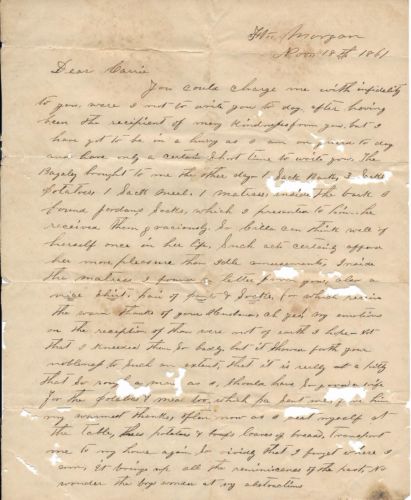 Ft. Morgan
Nov 18th 1861
Dear Carrie
You could charge me with infidelity
to you, were I not to write you to day, after having
been the recipient of many kindnesses from you, but I
have got to be in a hurry as I am on guard to day
and have only a certain short time to write you. The
brought to me the other day 1 Sack 2 Sacks
Potatoes 1 Sack Meal, 1 Matress, inside the I
found Jordans Socks, which I presented to him. he
received them graciously. So Cilla can think well of
herself once in her life, Such acts certainly afford
her more pleasure than Idle amusements, Inside
the matress I found a letter from you, also a
nice Shirt, pair of & Socks, for which receive
the warm thanks of your Husband, Ah yes! My emotions
on the reception of them were not of earth I hope - Not
that I needed them So badly but it showed forth your
nobleness to Such an extent, that it is really a pity
that So rough a man as I, Should have So good a wife
For the potatoes & meal &c, which Pa Sent me, give him
my warmest thanks, often now as I seat myself at
the Table, potatoes & loaves of bread, transport
me to my home again. So vividly that I forget where I
am, It brings up all the reminiscences of the past, No
wonder the boys wonder at my abstraction